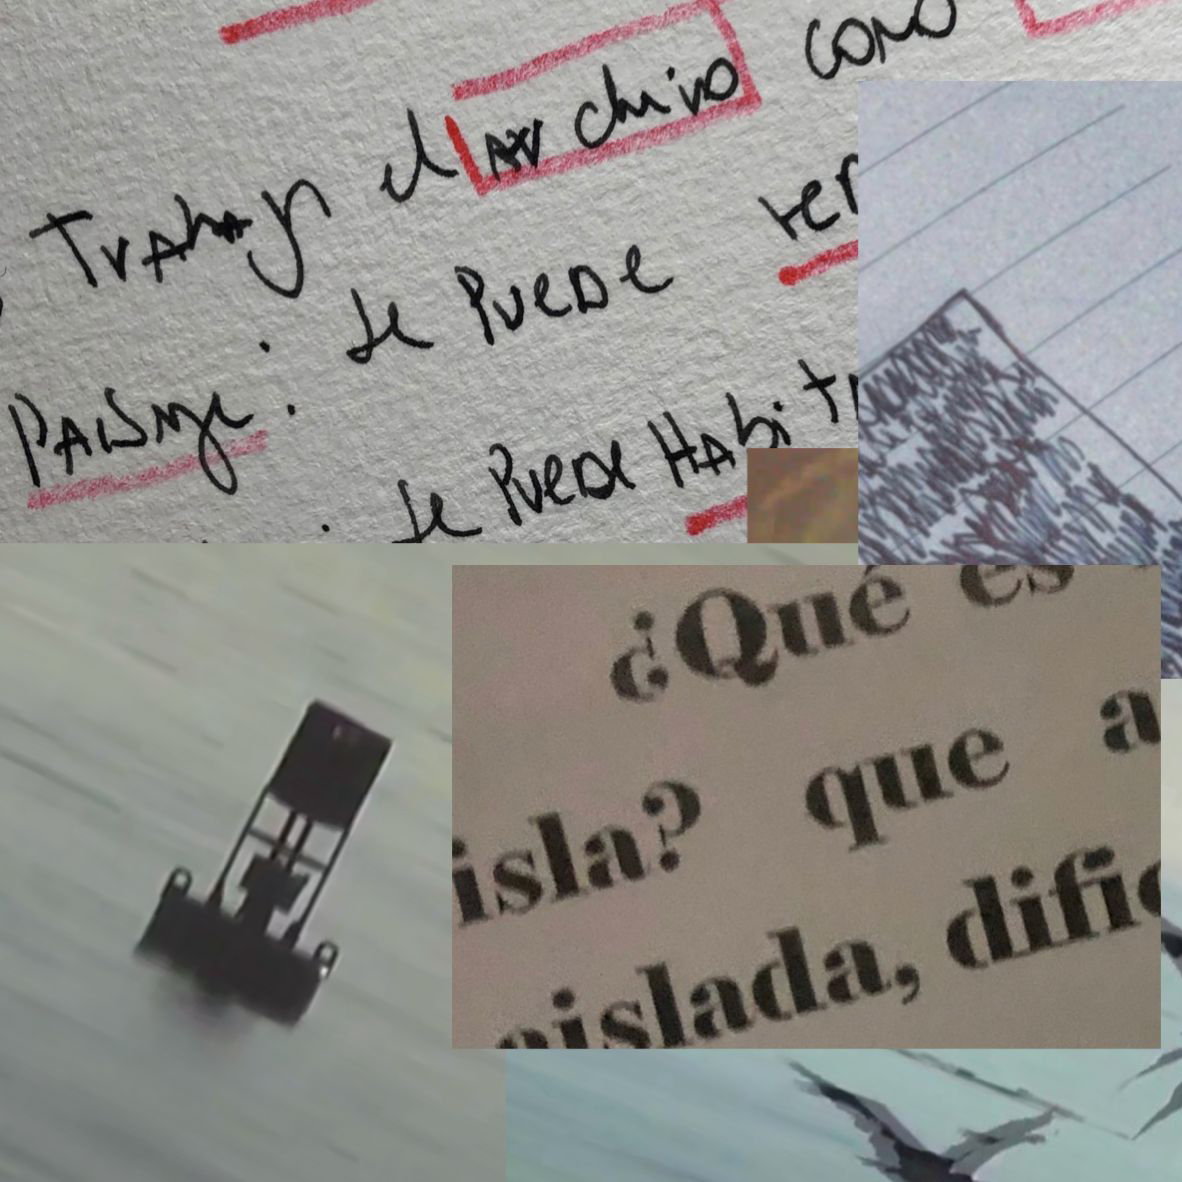 Trabajar el archivo como
Paisaje. · Se puede
· Se puede Habit
¿Qué es
isla? que a
aislada, dific